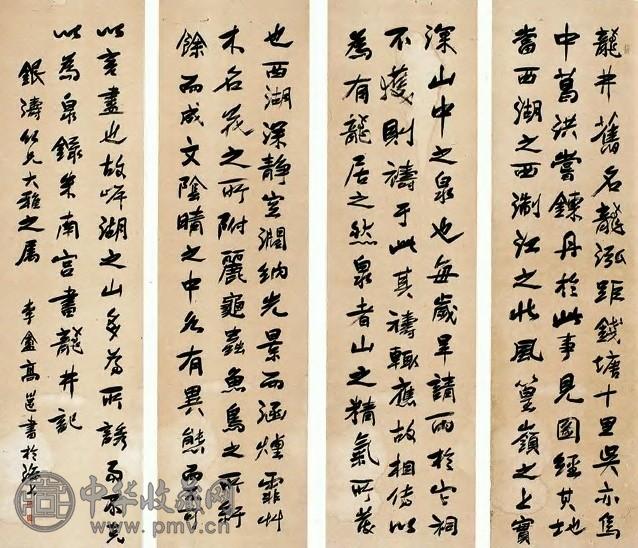 龍井舊名龍泓距錢塘十里吳赤烏
中葛洪嘗鍊丹於此事見圖經其地
當西湖之西淛江之北風篁嶺之上實
深山中之泉也每歲旱請雨於它祠
不獲則禱于此其禱輒應故相傳以
為有龍居之然泉者山之精氣所發
也西湖深靜空濶納光景而涵煙霏艸
木名花之所附麗龜蟲魚鳥之所紆
餘而成文陰晴之中各有異態而不可
以言盡也故岸湖之山多為所誘而不克
以為泉錄米南宮書龍井記
銀濤仁兄大雅之屬 李盦高邕書於海上
中华收藏网
www.pmv.cn